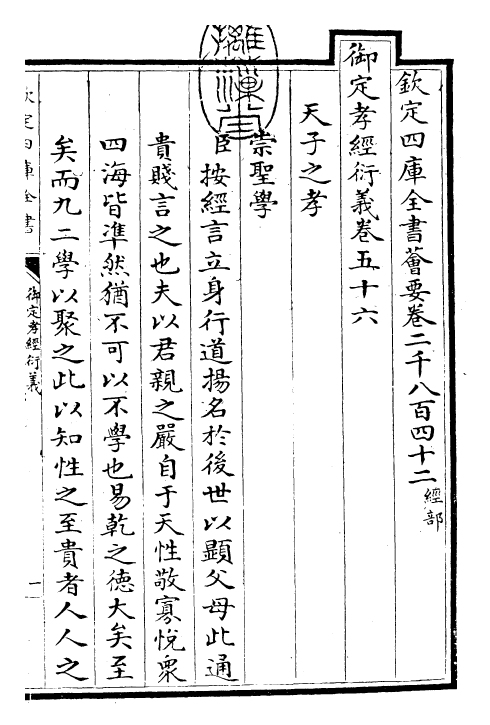 欽定四庫全書薈要卷二千八百四十二 經部
御定孝經衍義卷五十六
天子之孝
崇聖學
臣按經言立身行道揚名於後世以顯父母此通
貴賤言之也夫以君親之嚴自于天性敬寡悅衆
四海皆準然猶不可以不學也易乾之德大矣至
矣而九二學以聚之此以知性之至貴者人人之
欽定四庫全書
御定孝經衍義
一